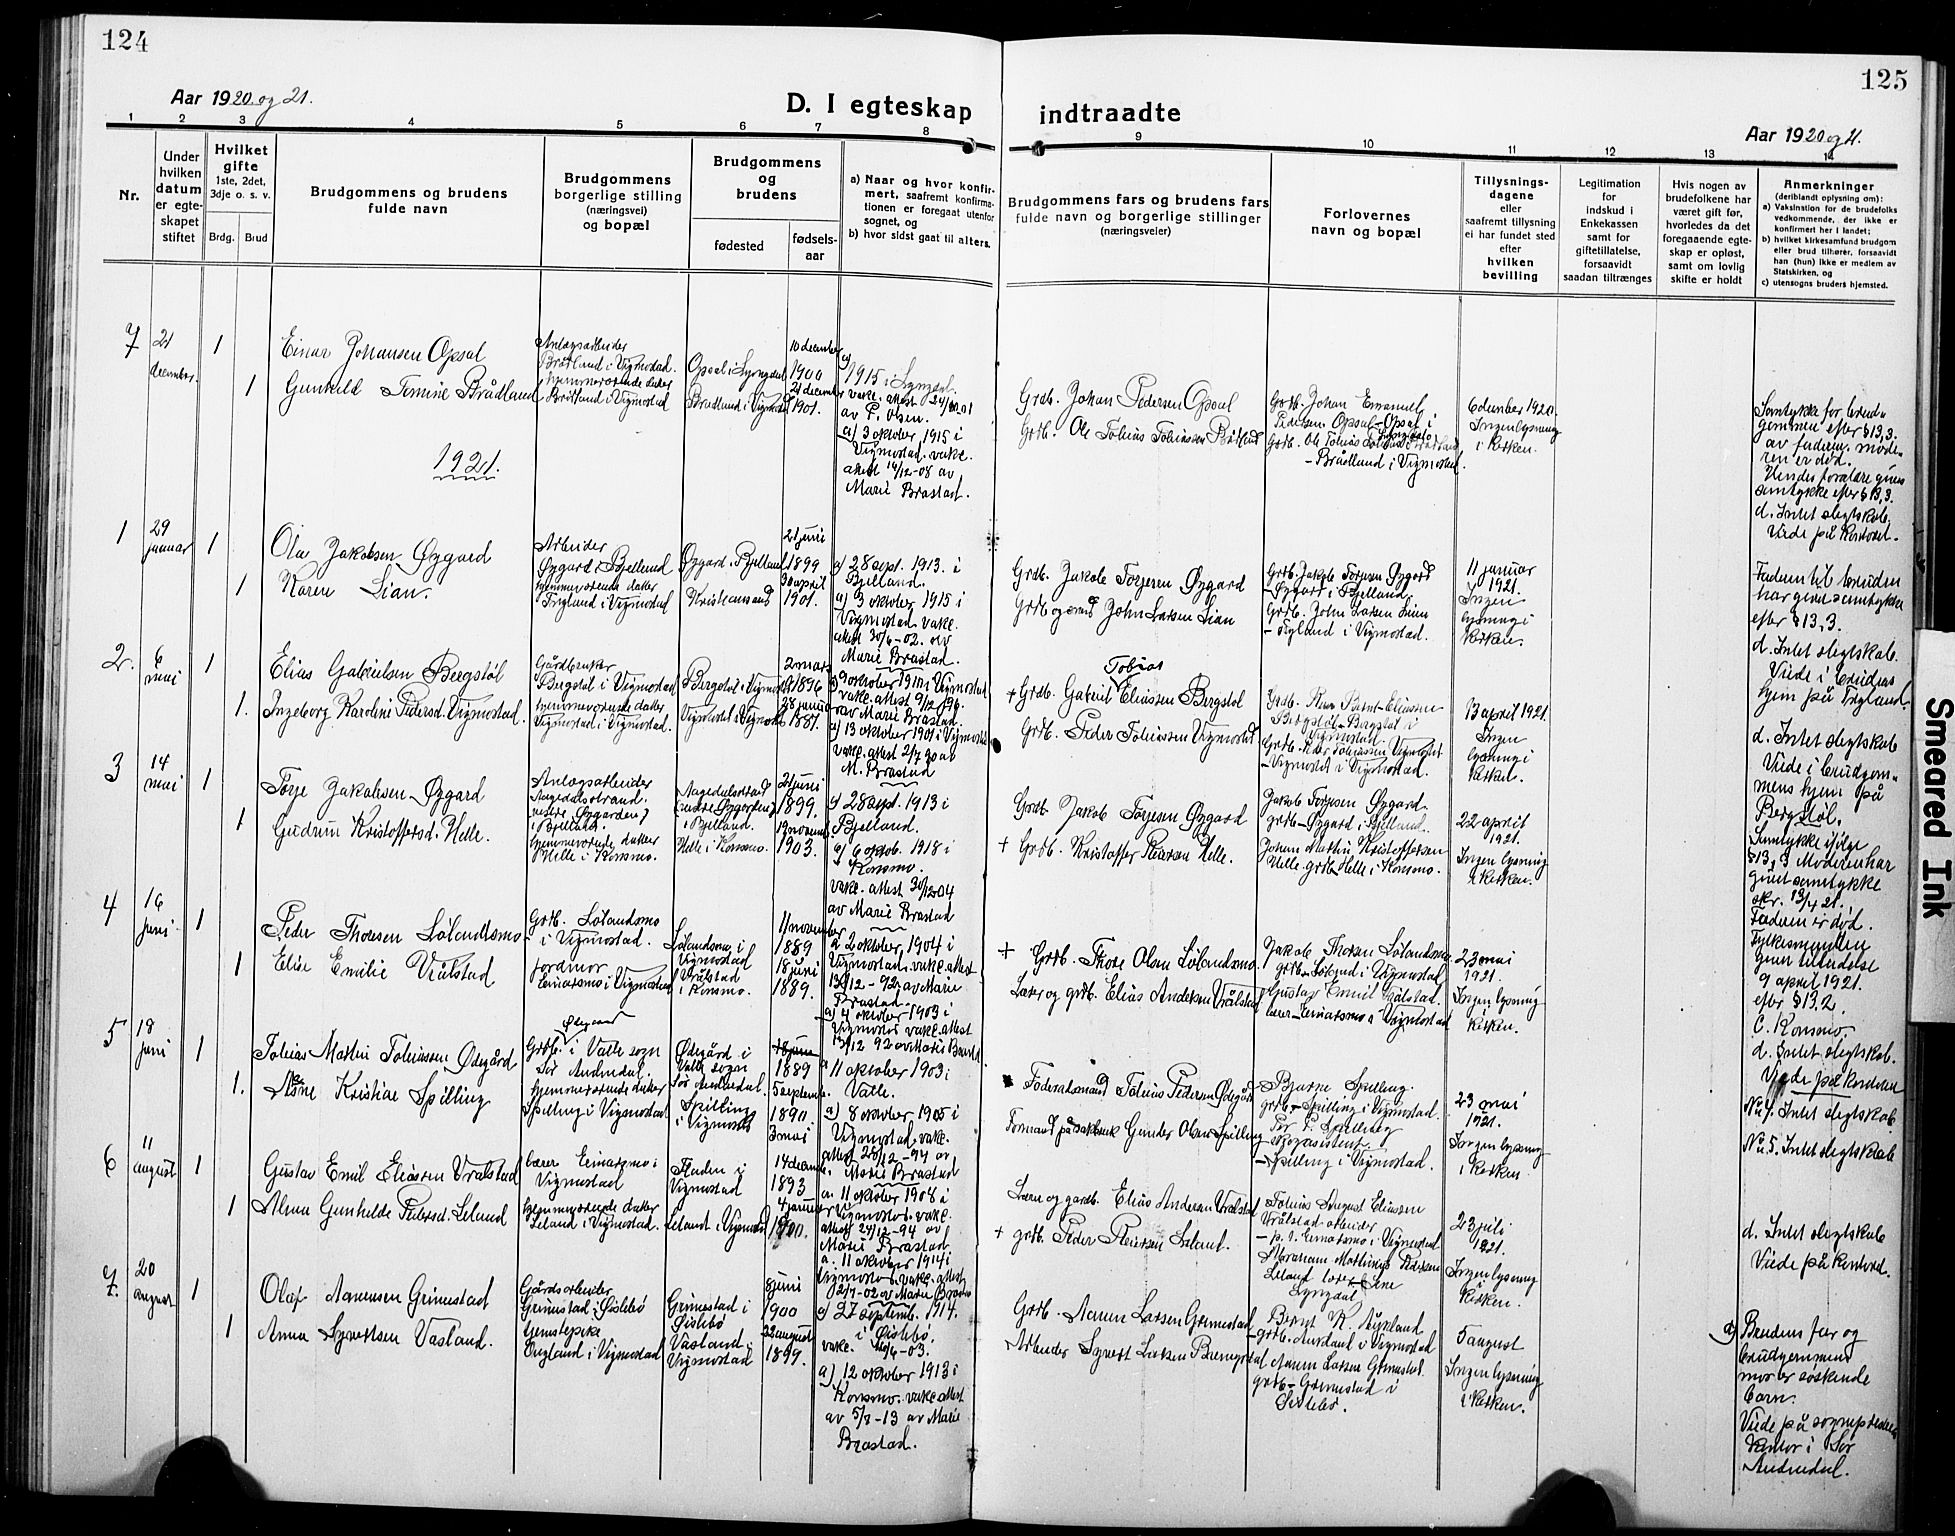 124
Aar 1920 og 21.
D. I egteskap
1 2 3 4 5 6 7 8
Nr.
Under hvilken datum er egteskapet stiftet
Hvilket gifte
1ste, 2det, 3dje o. s. v.
Brdg. Brud
Brudgommens og brudens fulde navn
Brudgommens borgerlige stilling (næringsvei) og bopæl
Brudgommens og brudens
fødested
fødselsaar
a) Naar og hvor konfirmert, saafremt konfirmationen er foregaat utenfor sognet, og
b) hvor sidst gaat til alters.
7 21 december. 1
Einar Johansen Opsal
Anlægsarbeider
Brådland i Vigmostad.
Opsal i Lyngdal
10 december 1900
a) 1915 i Lyngdal.
av P. Olsen.
1
Gunhild Tomine Brådland
hjemmeværende datter
Brådland i Vigmostad
Brådland i Vigmostad
21 december 1901.
a) 3 oktober 1915 i
Vigmostad. vakc.
attest 14/12-08 av
Marie Brastad.
1921.
1 29 januar 1
Ola Jakobsen Øygard
Arbeider
Øygard i Bjelland
Øygard i Bjelland
21 juni 1899
a) 28 sept. 1913. i
Bjelland.
1
Karen Lian.
hjemmeværende datter
Trygland i Vigmostad
Kristiansand
30 april 1901.
a) 3 oktober 1915 i
Vigmostad vakc.
attest 30/6-02. av
Marie Brastad.
2. 6 mai 1
Elias Gabrielsen Bergstøl
Gårdbruker
Bergstøl i Vigmostad
Bergstøl i Vigmostad
2 mars 1896
av Marie Brastad.
1.
Ingeborg Karoline Pedersd. Vigmostad.
hjemmeværende datter
Vigmostad i Vigmostad.
Vigmostad i Vigmostad
28 januar 1887.
a) 13 oktober 1901 i Vigmostad
M. Brastad
3 14 mai 1
Torje Jakobsen Øygard
Anlægsarbeider
i Bjelland.
21 juni 1899.
a) 28 sept. 1913 i
Bjelland.
1
Gudrun Kristoffersd. Helle.
hjemmeværende datter
Helle i Konsmo.
Helle i Konsmo.
13 november 1903.
a) 6 oktob. 1918 i
Konsmo.
vakc. attest 30/12-04
av Marie Brastad
4 16 juni 1
Peder Thoresen Lølandsmo
Grdb. Lølandsmo
i Vigmostad.
Lølandsmo i
Vigmostad
11 november 1889
a) 2 oktober 1904 i
Vigmostad. vakc. attest
13/12-92 av Marie
Brastad.
1
Elise Emilie Vrålstad
Jordmor
Einarsmo i Vigmostad
Vrålstad
i Konsmo.
18 juni 1889.
a) 4 oktober 1903 i
Vigmostad vakc. attest
13/12 92 av Marie Brastad
5 18 juni 1
Tobias Martin Tobiassen Ødegård
Ødegaard
Grdb. i Valle sogn
Sør Audnedal.
Ødegård i
Valle sogn
Sør Audnedal.
1889
a) 11 oktober 1903 i
Valle.
1.
Asne Kristine Spilling
hjemmeværende datter
Spilling i Vigmostad
Spilling
i Vigmostad
5 septemb. 1890.
a) 8 oktober 1905 i
Vigmostad vakc.
Marie Brastad
6 11 august 1
Gustav Emil Eliassen Vrålstad
Lærer Einarsmo i
Vigmostad
Fladen i
Vigmostad
14 decemb. 1893
a. 11 oktober 1908 i
Vigmostad. vakc.
attest 24/12-94 av
Marie Brastad
1
Alma Gunhilde Pedersd. Leland
hjemmeværende datter
Leland i Vigmostad.
Leland i Vigmostad
4 januar 1900.
a. 11 oktober 1914 i
Vigmostad. vakc. attest
12/7-02 av Marie Brastad
7. 20 august 1
Olaf Aanensen Grimestad
Gårdsarbeider
Grimestad i Øislebø
Grimestad i
Øislebø
8 juni 1900
a) 27 septemb. 1914.
i Øislebø.
1
Anna Syvertsen Vasland.
tjenestepike
Vasland i
Vigmostad
22 august 1899.
a) 12 oktober 1913 i
Konsmo. vakc. attest
av 5/3-13 av Marie
Brastad.
125
indtraadte
Aar 1920 og 21.
9 10 11 12 13 14
Brudgommens fars og brudens fars fulde navn og borgerlige stillinger (næringsveier)
Forlovernes navn og bopæl
Tillysningsdagene eller saafremt tillysning ei har fundet sted efter hvilken bevilling
Legitimation for indskud i Enkekassen samt for giftetillatelse, forsaavidt saadan tiltrænges
Hvis nogen av brudefolkene har været gift før, hvorledes da det foregaaende egteskap er opløst, samt om lovlig skifte er holdt
Anmerkninger
(deriblandt oplysning om):
a) Vaksination for de brudefolks vedkommende, der ikke er konfirmert her i landet;
b) hvilket kirkesamfund brudgom eller brud tilhører, forsaavidt han (hun) ikke er medlem av Statskirken, og
c) utensogns bruders hjemsted.
Grdb. Johan Pedersen Opsal
Grdb. Ole Tobias Tobiassen Brådland
Grdb. Johan Emanuel
Pedersen Opsal - Opsal i
Lyngdal
Grdb. Ole Tobias Tobiassen Brådland
- Brådland i Vigmostad.
6 december 1920.
Ingen lysning
i kirken.
Samtykke for brudgommen efter § 13,3.
av faderen moderen er død.
samtykke efter § 13,3.
d. Intet slegtskab.
Viede på kontoret.
Grdb. Jakob Torjesen Øygard
Grdb og smed John Larsen Lian
Grdb. Jakob Torjesen Øygard
- Øygard i Bjelland.
Grdb. John Larsen Lian
- Trygland i Vigmostad.
11 januar
1921.
Ingen
lysning i
kirken.
Faderen til bruden
har givet samtykke
efter § 13,3.
d. Intet slegtskab.
Viede i brudens
hjem på Trygland.
Tobias
+ Grdb. Gabriel Eliassen Bergstøl
Grdb. Peder Tobiassen Vigmostad
Bergstøl - Bergstøl i
Vigmostad.
Grdb. Peder Tobiassen Vigmostad
- Vigmostad i Vigmostad.
13 april 1921.
Ingen
lysning i
kirken.
d. Intet slegtskab
Viede i brudgommens hjem på
Bergstøl.
Grdb. Jakob Torjesen Øygard
+ Grdb. Kristoffer Pedersen Helle.
Jakob Torjesen Øygard
grdb - Øygard i Bjelland.
Johan Martin Kristoffersen
Helle. grdb Helle i Konsmo.
22 april
1921.
Ingen lysning
i kirken.
Samtykke ifølge
§ 13,3 Moderen har
givet samtykke
skr. 13/4 21.
Faderen er død.
Fylkesmannen
given tilladelse
9 april 1921.
efter § 13.2.
C. Konsmo
d. Intet slegtskab.
Viede på kontoret
+ Grdb. Thore Olsen Lølandsmo.
Lærer og grdb. Elias Andersen Vrålstad
Jakob Thorsen Lølandsmo
grdb - Løland i Vigmostad
Gustav Emil Vrålstad.
lærer - Einarsmo i Vigmostad
23 mai
1921.
Ingen lysning i
kirken.
Nr 4. Intet slegtskab.
Føderådsmand Tobias Pedersen Ødegård
Formand på saltbruk Gunder Olsen Spilling
Bjarne Spilling.
grdb. - Spilling i Vigmostad.
- Spilling i Vigmostad.
23 mai
1921.
Ingen lysning
i kirken
Nr. 5. Intet slegtskab
Lærer og gardb. Elias Andersen Vrålstad
+ grdb. Peder Pedersen Leland.
Tobias August Eliassen
Vrålstad arbeider
- p. t. Einarsmo i Vigmostad
Leland
Lyngdal
23 juli
1921.
Ingen lysning
i
kirken.
d. Intet slegtskab
Viede på kontoret.
Grdb. Aanen Larsen Grimestad
Arbeider Syvert Larsen
grdb. i Vigmostad
Aanen Larsen Grimestad
grdb - Grimestad i
Øislebø.
5 august
Ingen lysning
i kirken.
d) Brudens far og
brudgommens
mor er søskende
barn.
Viede på sogneprestens
kontor i Sør
Audnedal.
Smeared Ink